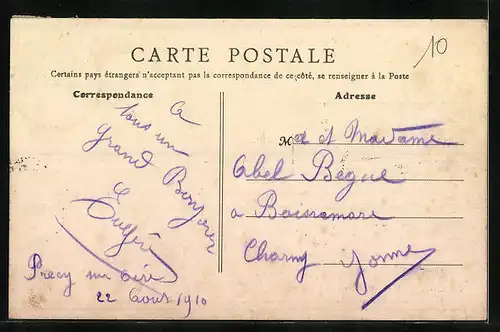 10
CARTE POSTALE
Certains pays étrangers n'acceptant pas la correspondance de ce côté, se renseigner à la Poste
Correspondance
Adresse
a
tous un
grand Bonjour
Precy sur oise
22 Aout 1910
Mr et Madame
Abel Begue
a
Charny Yonne